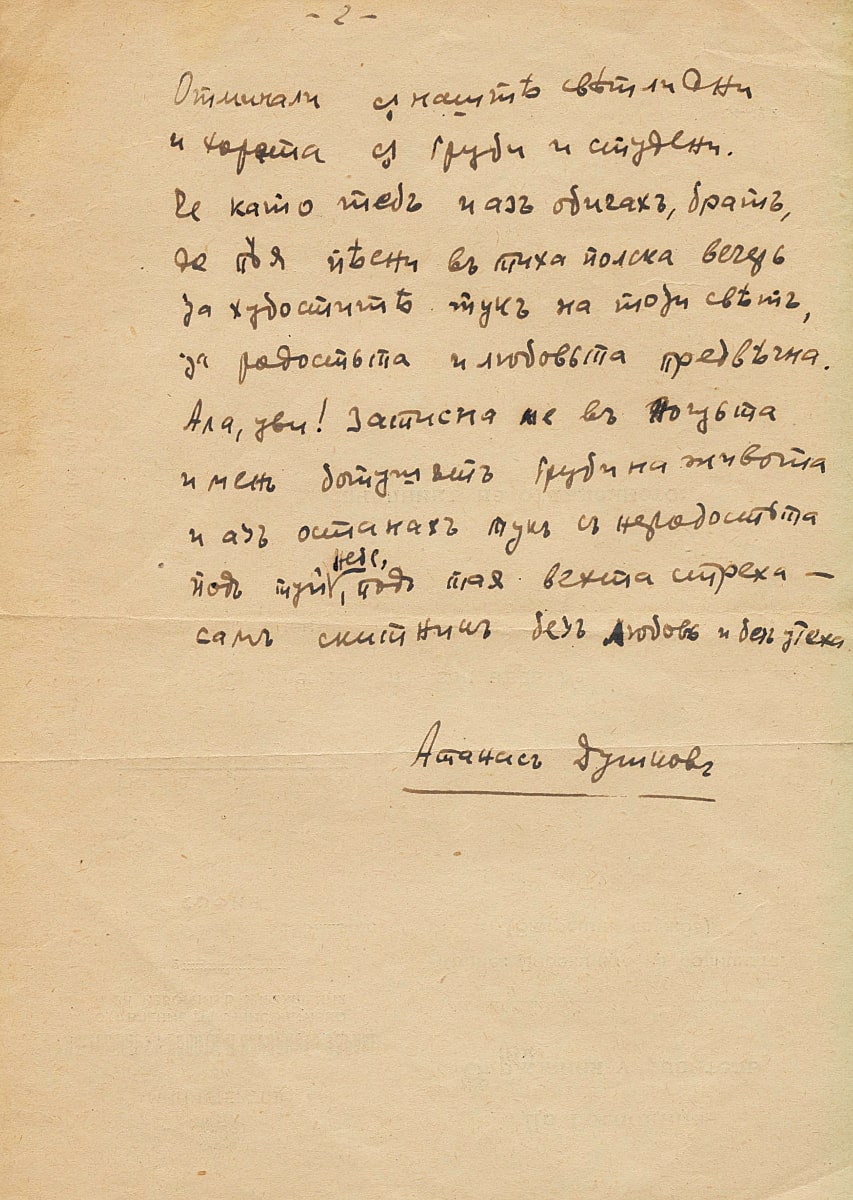 - 2 -
Отминали сѫ нашитѣ свѣтли дни
и хората сѫ груби и студени.
Че като тебъ и азъ обичахъ, братъ,
да пѣя пѣсни въ тиха полска вечерь
за хубоститѣ тукъ на този свѣтъ,
за радостьта и любовьта предвѣчна.
Ала, уви! Затисна ме въ ногутьта
и менъ ботушътъ груби на живота
и азъ останахъ тукъ съ нерадостьта
небе,
подъ туй, подъ тая вехта стреха —
самъ скитникъ безъ любовь и безъ утеха.
Атанасъ Душковъ